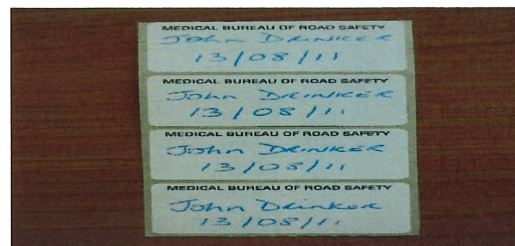 MEDICAL BUREAU OF ROAD SAFETY
John DRINKER
13/08/11
MEDICAL BUREAU OF ROAD SAFETY
John DRINKER
13/08/11
MEDICAL BUREAU OF ROAD SAFETY
John DRINKER
13/08/11
MEDICAL BUREAU OF ROAD SAFETY
John Drinker
13/08/11